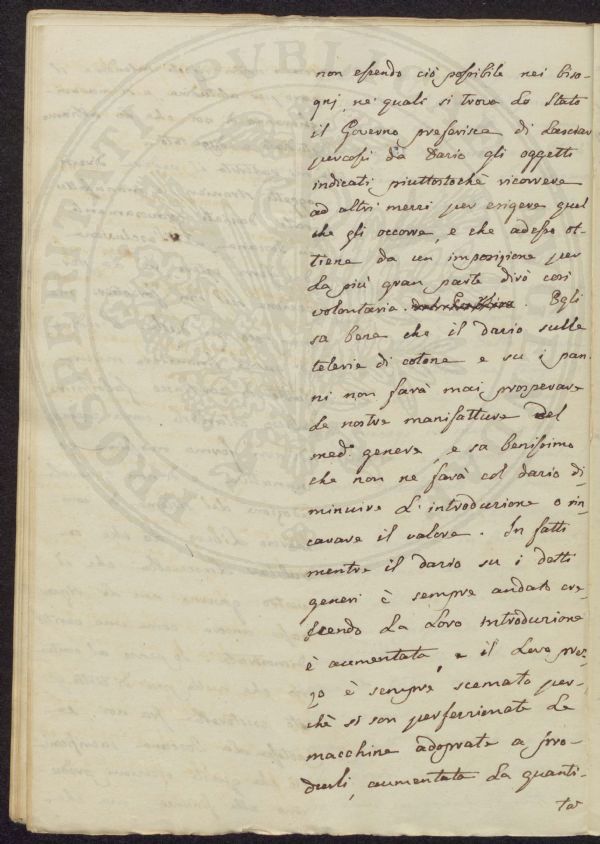 non essendo ciò possibile nei biso-
gni, ne' quali si trova lo Stato
il Governo preferisca di lasciar
percossi da Dazio gli oggetti
indicati piuttostochè ricorrere
ad altri mezzi per esigere quel
che gli occorre, e che adesso ot-
tiene da un imposizione per
la più gran parte dirò così
volontaria. Egli
sa bene che il dazio sulle
telerie di cotone e su i pan-
ni non farà mai prosperare
le nostre manifatture del
med.º genere, e sa benissimo
che non ne farà col dazio di-
minuire l'introduzione o rin-
carare il valore. In fatti
mentre il dazio su i detti
generi è sempre andato cre-
scendo la loro introduzione
è aumentata, e il loro prez-
zo è sempre scemato per-
chè si son perfezionate le
macchine adoprate a pro-
durli, aumentata la quanti-
tà
PROSPERITATI PUBLICAE